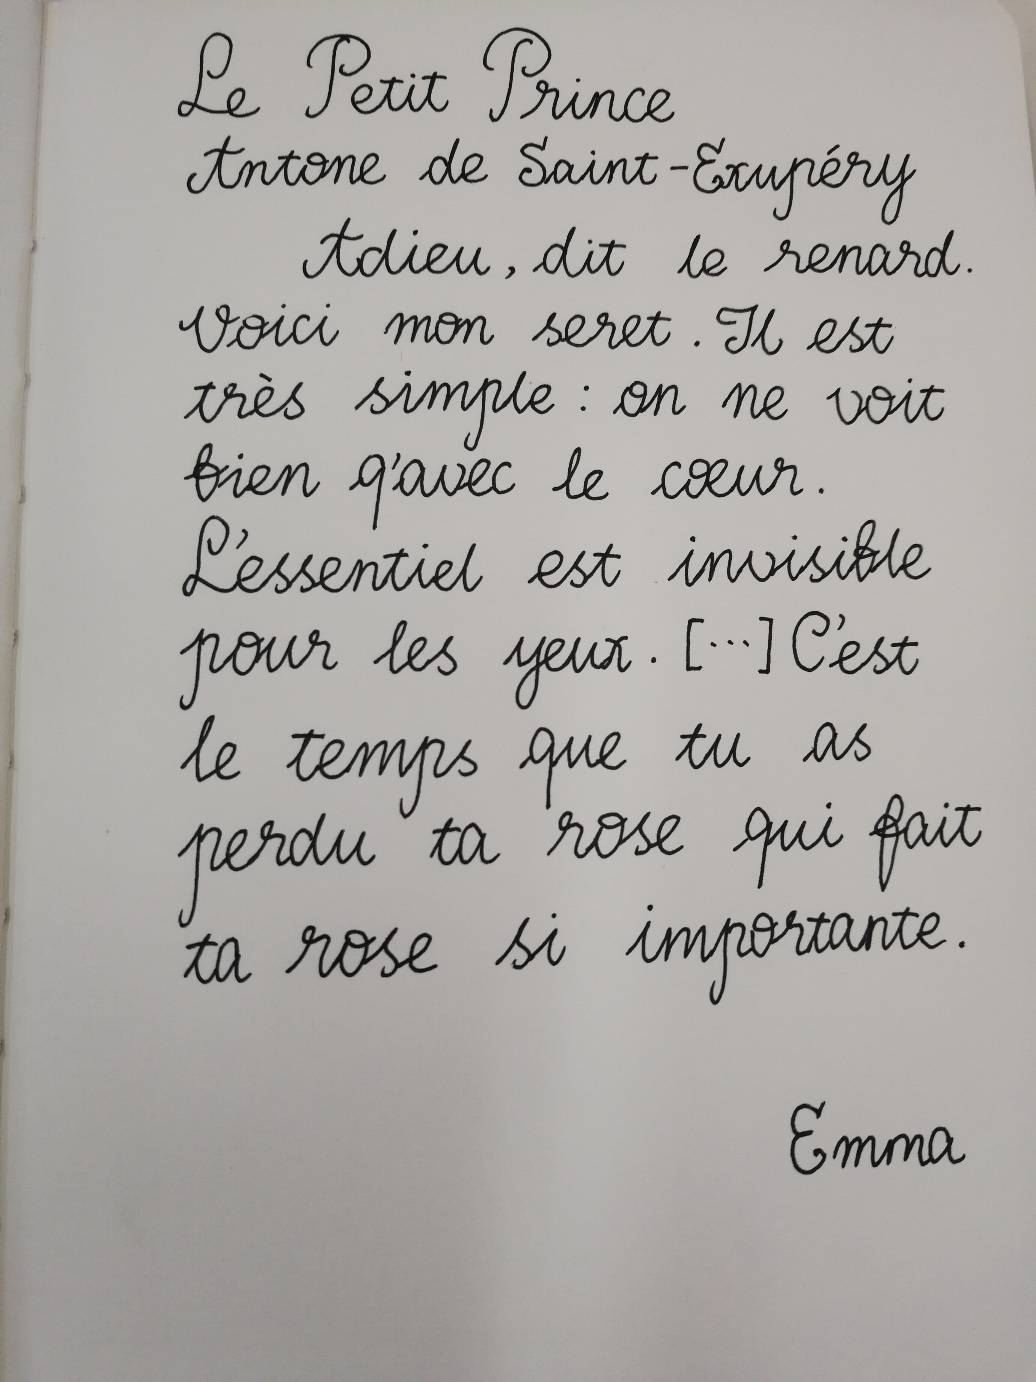 Le Petit Prince
Antone de Saint-Exupéry
Adieu, dit le renard.
Voici mon seret. Il est
très simple : on ne voit
bien q'avec le cœur.
L'essentiel est invisible
pour les yeux. [...] C'est
le temps que tu as
perdu ta rose qui fait
ta rose si importante.
Emma